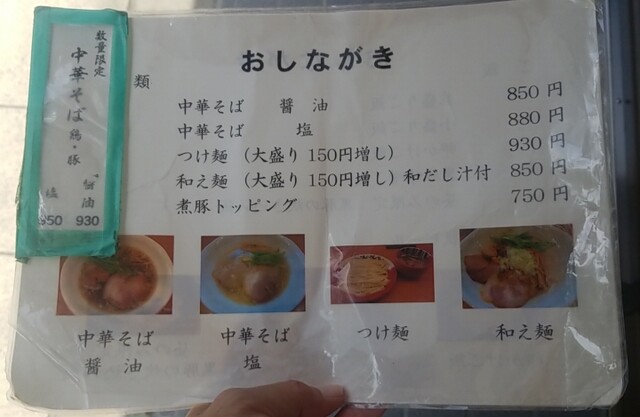 おしながき
類
中華そば 醤油 850円
中華そば 塩 880円
つけ麺 (大盛り150円増し) 930円
和え麺 (大盛り150円増し) 和だし汁付 850円
煮豚トッピング 750円
数量限定
中華そば 鶏・豚
醤油 930
塩 950
中華そば
醤油
中華そば
塩
つけ麺
和え麺